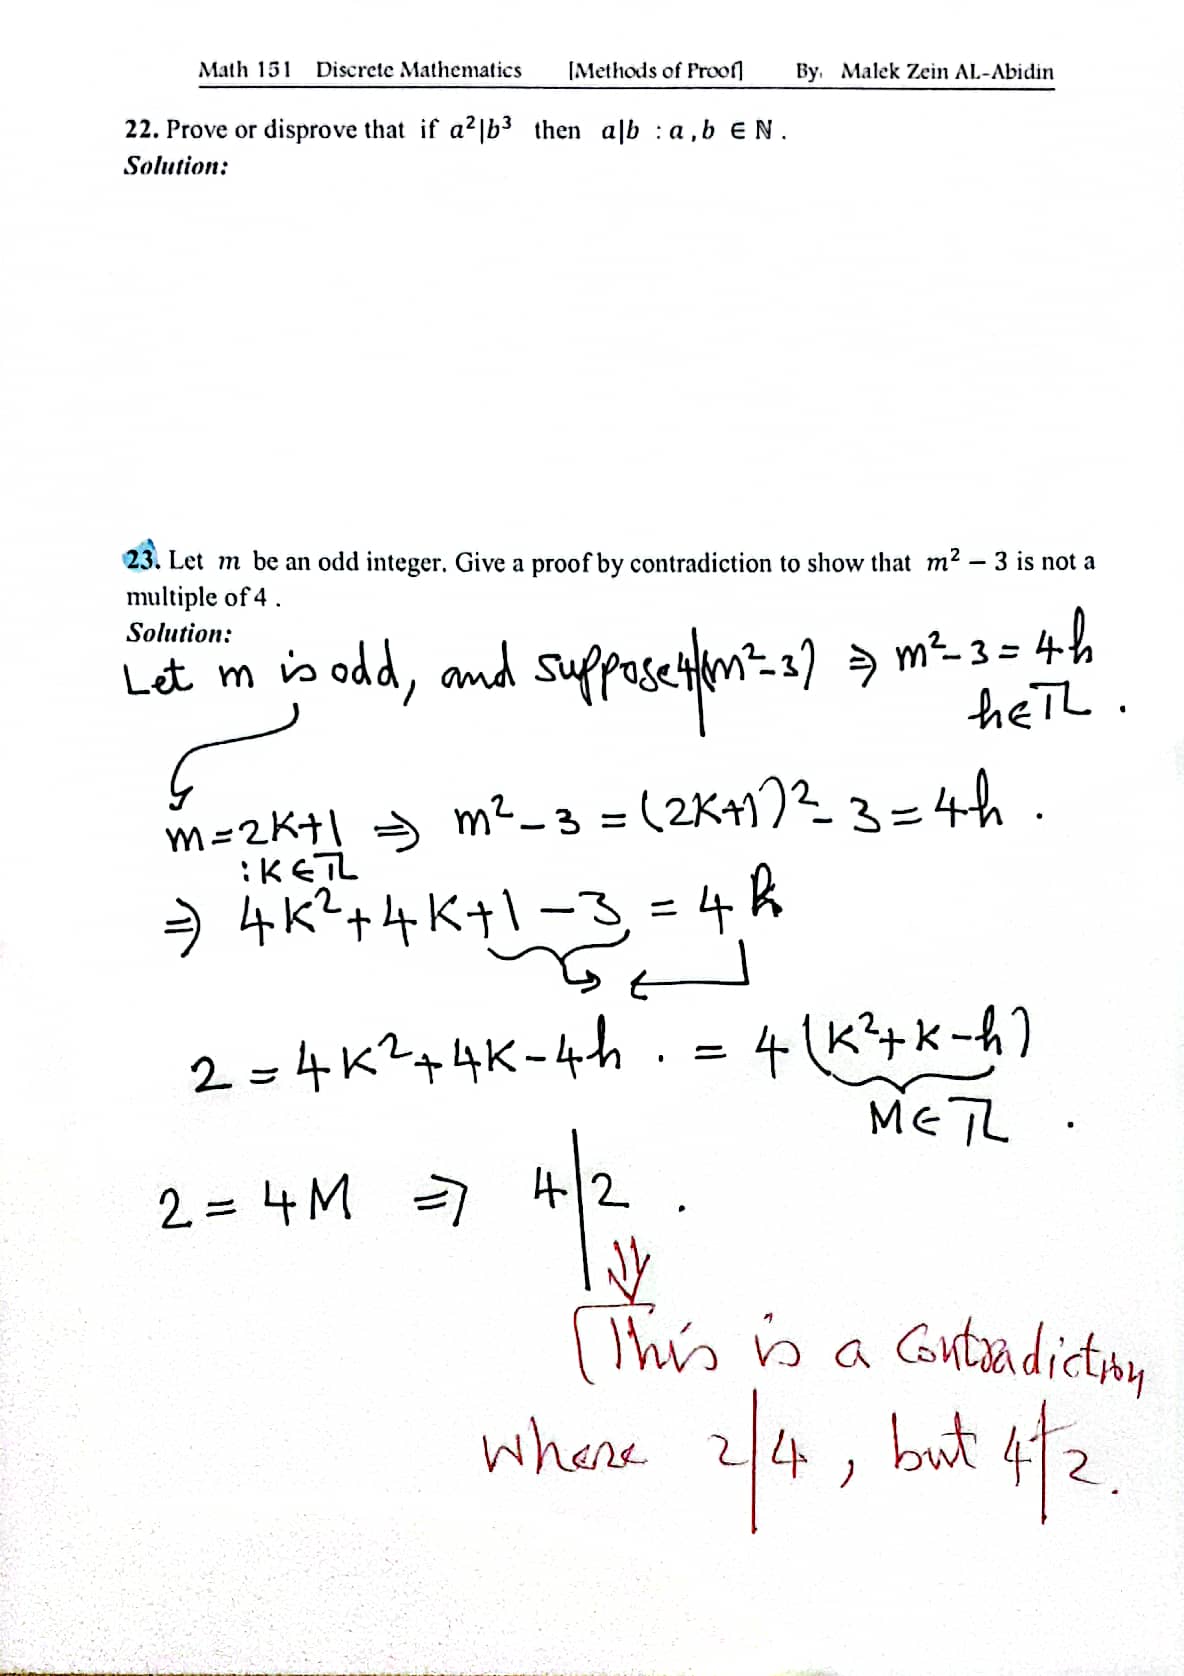 Math 151 Discrete Mathematics [Methods of Proof] By. Malek Zein AL-Abidin
22. Prove or disprove that if a²|b³ then a|b : a,b ∈ N.
Solution:
23. Let m be an odd integer. Give a proof by contradiction to show that m² − 3 is not a
multiple of 4.
Solution:
Let m is odd, and suppose 4|(m²-3) ⇒ m²-3 = 4h
h∈ℤ.
m=2K+1 ⇒ m²-3 = (2K+1)²-3 = 4h.
:K∈ℤ
⇒ 4K²+4K+1-3 = 4h
2 = 4K²+4K-4h. = 4(K²+K-h)
M∈ℤ.
2 = 4M ⇒ 4|2.
This is a Contradiction
where 2|4, but 4∤2.